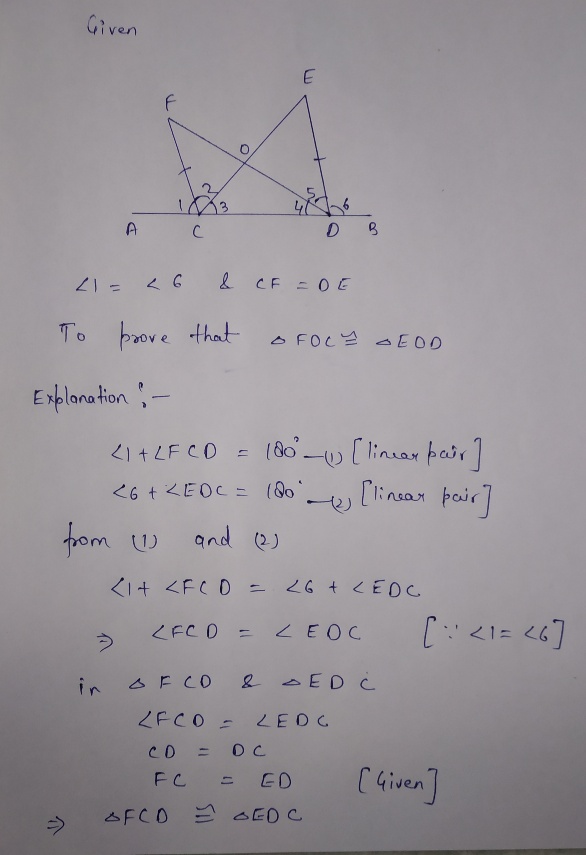 Given
E
F
O
2
5
1
3
4
6
A
C
D
B
∠1 = ∠6 & CF = DE
To prove that △FOC ≅ △EOD
Explanation :-
∠1 + ∠FCD = 180° —(1) [linear pair]
∠6 + ∠EDC = 180° —(2) [linear pair]
from (1) and (2)
∠1 + ∠FCD = ∠6 + ∠EDC
⇒ ∠FCD = ∠EDC [∵ ∠1 = ∠6]
in △FCD & △EDC
∠FCD = ∠EDC
CD = DC
FC = ED [Given]
⇒ △FCD ≅ △EDC